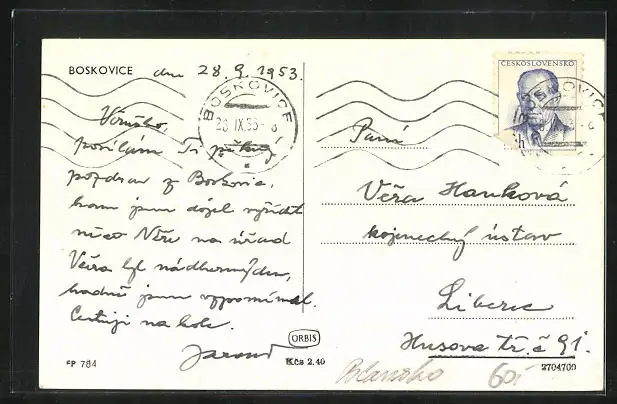 BOSKOVICE dne 28. 9. 1953.
ČESKOSLOVENSKO
BOSKOVICE
28. IX. 53 - 8
Věruško,
posílám Ti pěkný
pozdrav z Boskovic,
kam jsem dojel vyřídit
něco Věře na úřad
Včera byl nádherný den,
hodně jsem vzpomínal.
Cestuji na kole.
Paní
Věra Hanková
kojenecký ústav
Liberec
Husova tř. č 91.
ORBIS
CP 784
Kčs 2.40
2704700
Blansko 60,-